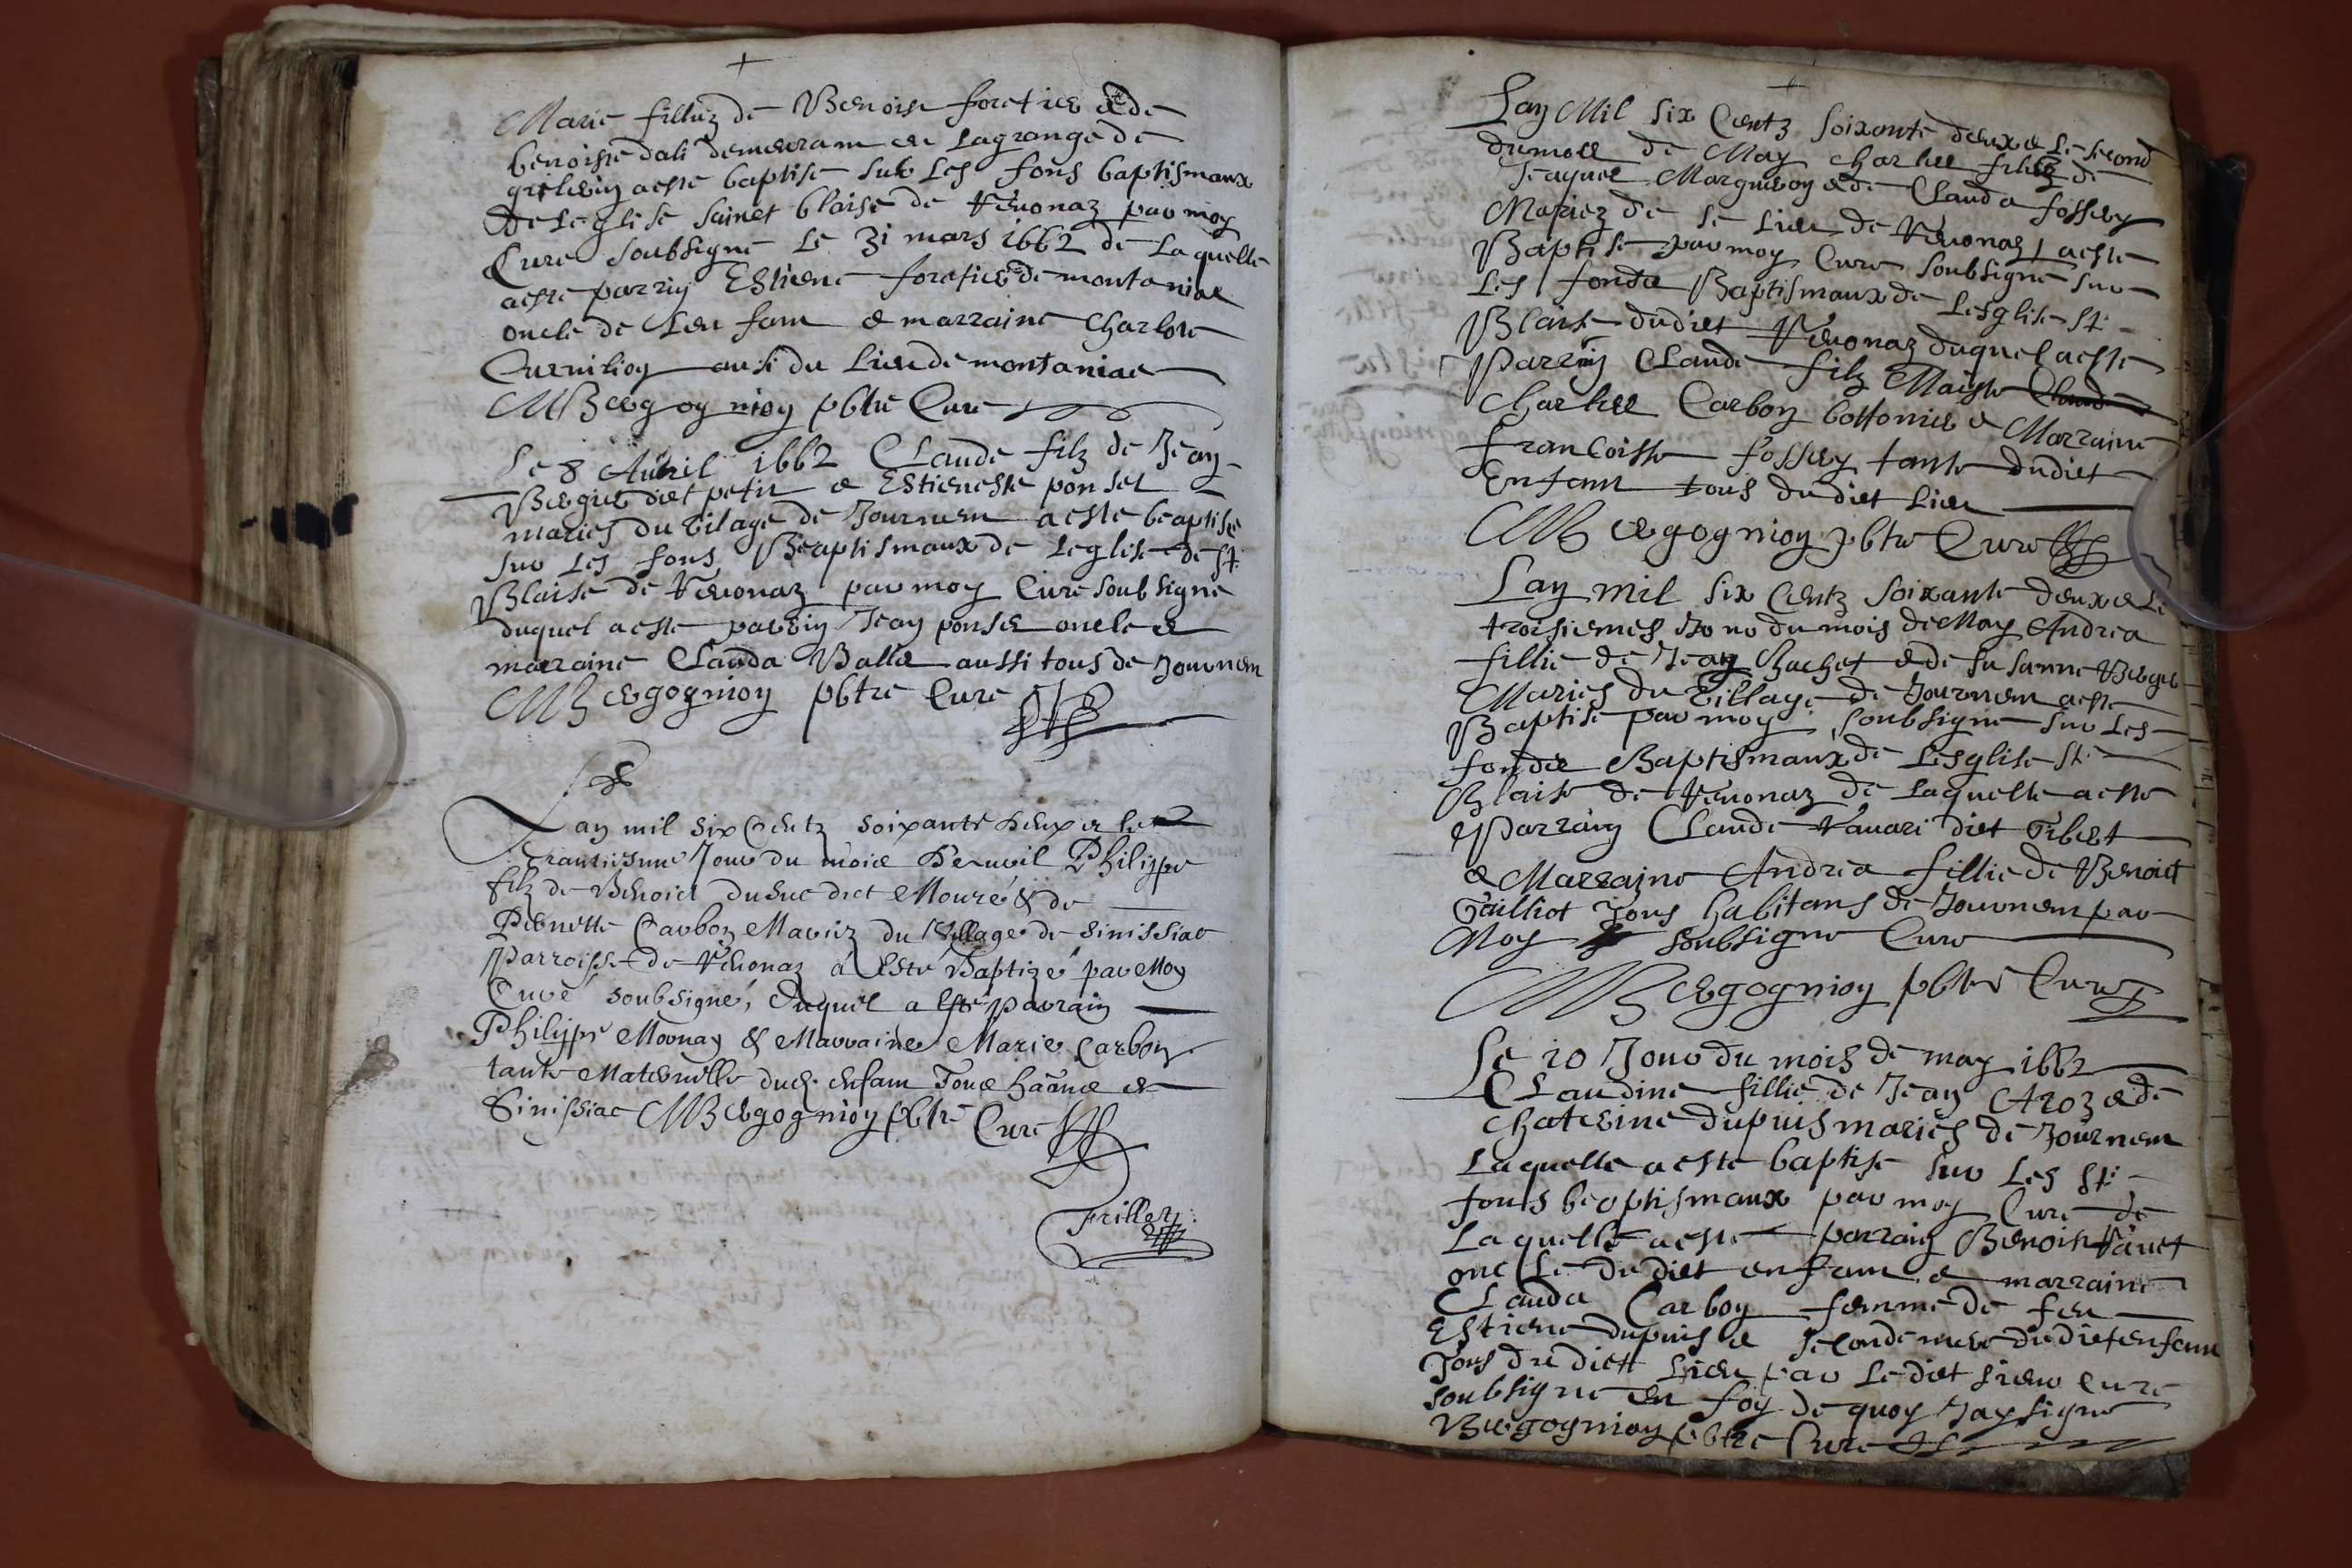 Marie filliez de Benoist foretier & de
benoiste dali demeurant en Lagrange de
a esté baptise sur Les fons baptismaux
de Leglise sainct blaise de Veuonaz par moy
Cure soubsigne Le 31 mars 1662 de Laquelle
a este parrin Estiene foretier de montaniac
oncle de Lenfam & marraine Charlote
ausi du Lieu de montaniac
MBergognion pbtre Cure
Le 8 Auril 1662 Claude filz de Jean
Bergier diet petit & Estieneste ponset
mariés du vilage de Journem a este baptise
sur Les fons Baptismaux de Leglise de St
Blaise de Veuonaz par moy Cure soubsigne
duquel a este parrin Jean ponset oncle &
marraine Clauda Balla aussi tous de Journem
MBergognion pbtre Cure
Lan mil six Centz soixante deux & le
trantiesme Jour du moice d'Auvil Philippe
filz de Benoict duduc dict Mouré & de
Pernette Carbon Mariez du Village de Sinissiac
Parroisse de Veuonaz à Esté Baptizé par Moy
Curé soubsigné, duquel a Esté parrain
Philippe Moonay & Marraine Marie Carbon
tante Maternelle dud. enfam Tous de
Sinissiac MBergognion pbtre Cure
Frillet
Lan Mil six Centz soixante deux & Le second
du mois de May Charles filz de
Jacques Margueron & de Clauda fossery
Mariez de se Lieu de Veuonaz a este
Baptise par moy Cure soubsigne sur
Les fondz Baptismaux de Lesglise St
Blaise dudiet Veuonaz duquel a este
Parrin Claude filz Maistre Claude
Charles Carbon bottonier & Marraine
francoisse fossery tante dudiet
Enfant tous dudiet Lieu
MBergognion pbtre Cure
Lan mil six Centz soixante deux & Le
troisiemes Jour du mois de May Andrea
fillie de Jean Bachet & de susanne Bergier
Mariés du Village de Journem a este
Baptise par moy soubsigne sur Les
fondz Baptismaux de Lesglise St
Blaise de Veuonaz de Laquelle a este
Parrain Claude Vauari diet Gibert
& Marrayne Andrea fillie de Benoict
Gailliot Tous habitans de Journem par
Moy soubsigne Cure
MBergognion pbtre Cure
Le 10 Jour du mois de may 1662
Claudine fillie de Jean Aroz & de
Chaterine dupuis mariés de Journem
Laquelle a este baptise sur Les St
fonts baptismaux par moy Cure de
Laquelle a este parrain Benoist Vauet
oncle dudiet enfant & marraine
Clauda Carbon femme de feu
Estiene dupuis & seconde mere dudiet enfant
Tous du diett Lieu par Ledict sieur Cure
soubsigne en foy de quoy Jay signe
Bergognion pbtre Cure